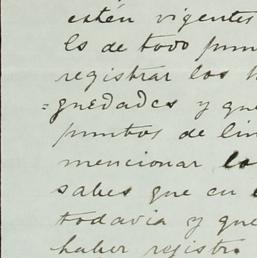 estén vigentes
es de todo pun
registrar los
=guedades y que
puntos de lin
mencionar lo
sabes que en
todavia y que
haber registr